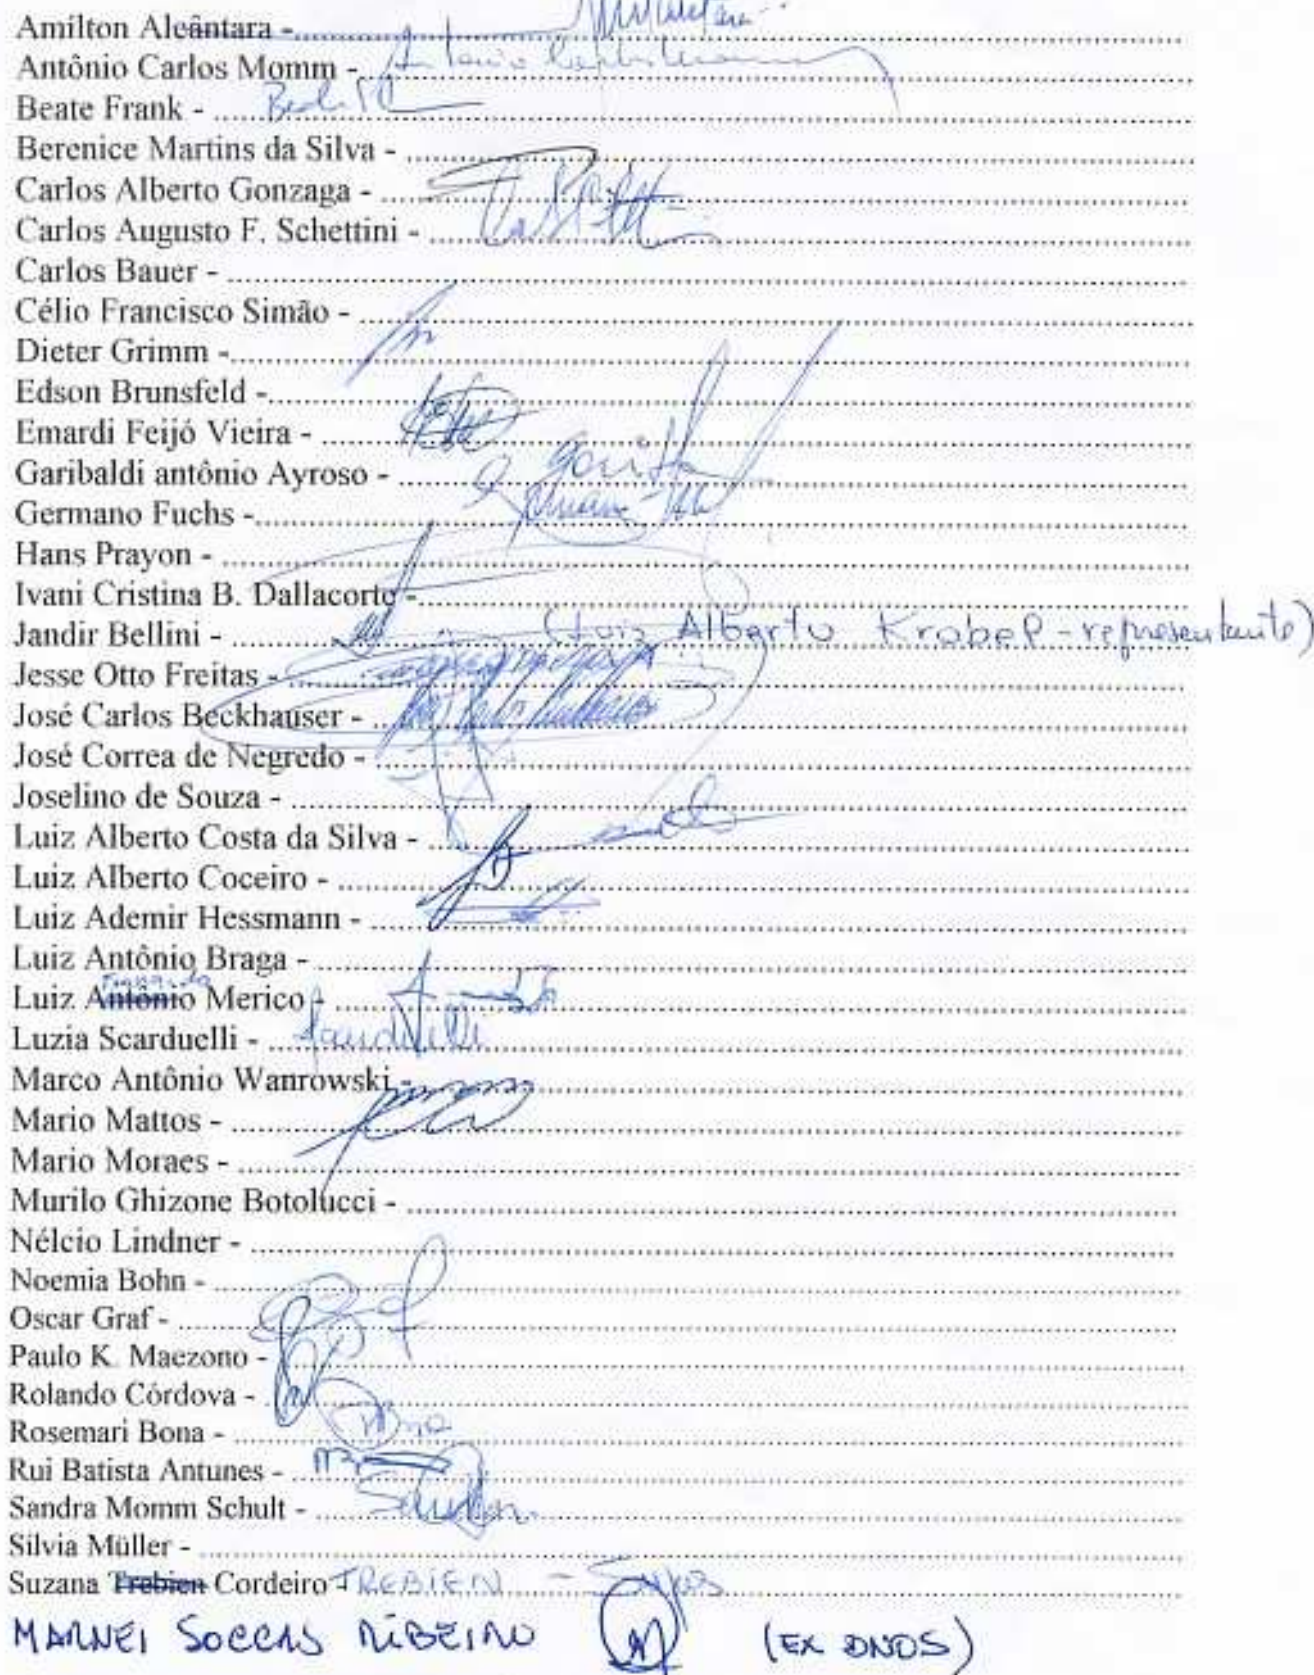 Amilton Alcântara -
Antônio Carlos Momm -
Beate Frank -
Berenice Martins da Silva -
Carlos Alberto Gonzaga -
Carlos Augusto F. Schettini -
Carlos Bauer -
Célio Francisco Simão -
Dieter Grimm -
Edson Brunsfeld -
Emardi Feijó Vieira -
Garibaldi antônio Ayroso -
Germano Fuchs -
Hans Prayon -
Ivani Cristina B. Dallacorte -
Jandir Bellini - (Luiz Alberto Krobel - representante)
Jesse Otto Freitas -
José Carlos Beckhauser -
José Correa de Negredo -
Joselino de Souza -
Luiz Alberto Costa da Silva -
Luiz Alberto Coceiro -
Luiz Ademir Hessmann -
Luiz Antônio Braga -
Luiz Antônio Merico -
Luzia Scarduelli -
Marco Antônio Wanrowski -
Mario Mattos -
Mario Moraes -
Murilo Ghizone Botolucci -
Nélcio Lindner -
Noemia Bohn -
Oscar Graf -
Paulo K. Maezono -
Rolando Córdova -
Rosemari Bona -
Rui Batista Antunes -
Sandra Momm Schult -
Silvia Müller -
Suzana Trebien Cordeiro TREBIEN -
MARNEI SOCCAS RIBEIRO (EX DNOS)